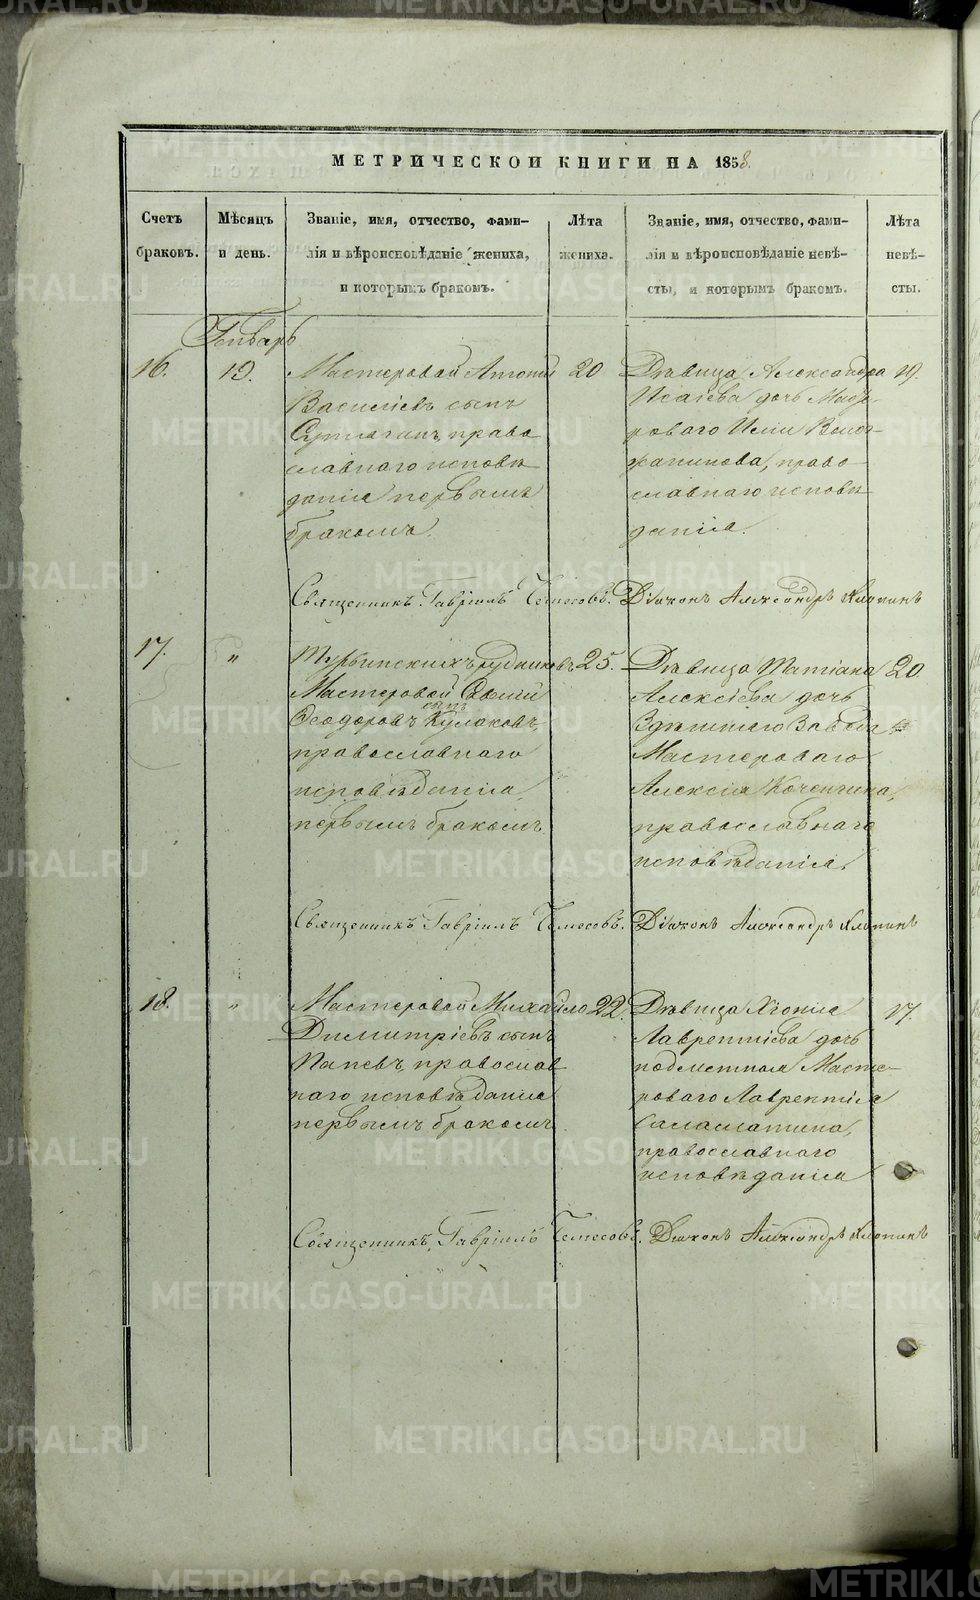 МЕТРИЧЕСКОЙ КНИГИ НА 1858.
Счетъ браковъ.
Мѣсяцъ и день.
Званіе, имя, отчество, фами-
лія и вѣроисповѣданіе жениха,
и которымъ бракомъ.
Лѣта жениха.
Званіе, имя, отчество, фами-
лія и вѣроисповѣданіе невѣ-
сты, и которымъ бракомъ.
Лѣта невѣ-
сты.
Генварь
16.
19.
Мастеровой Антоній
Василіевъ сынъ
право
славнаго исповѣ
данія первымъ
бракомъ.
20
Дѣвица Александра
Исаіева дочь
роваго Исаіи Волог-
жанинова, право
славнаго исповѣ
данія.
19.
Священникъ Гавріилъ Чемесовъ. Діаконъ Александръ Хлопинъ
17.
"
Турьинскихъ рудниковъ
Мастеровой
Ѳеодоровъ сынъ Кулаковъ,
православнаго
исповѣданія,
первымъ бракомъ.
25.
Дѣвица Татіана
Алексіева дочь
Здѣшняго Завода
Мастероваго
Алексія Коченгина,
православнаго
исповѣданія.
20.
Священникъ Гавріилъ Чемесовъ. Діаконъ Александръ Хлопинъ
18.
"
Мастеровой Михайло
Димитріевъ сынъ
Папевъ, православ
наго исповѣданія
первымъ бракомъ.
22.
Дѣвица Хіонія
Лаврентіева дочь
Масте-
роваго Лаврентія
Саламатина,
православнаго
исповѣданія
17.
Священникъ, Гавріилъ Чемесовъ. Діаконъ Александръ Хлопинъ
METRIKI.GASO-URAL.RU